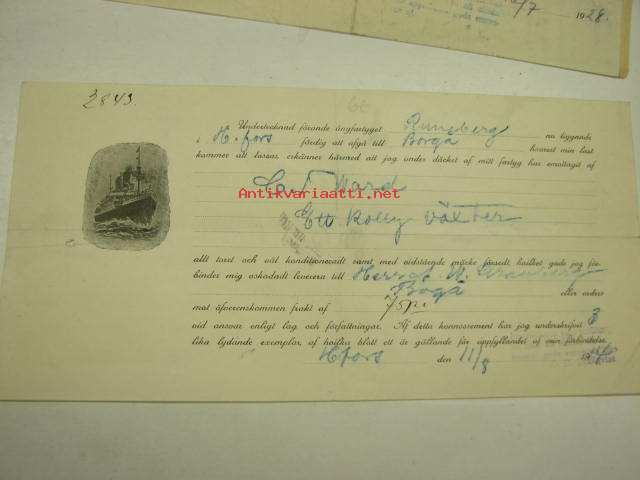 1928.
2843
Undertecknad förande ångfartyget Runeberg nu liggande
i H.fors färdig att afgå till Borgå hvarest min last
kommer att lossas, erkänner härmed att jag under däcket af mitt fartyg har emottagit af
Antikvariaatti.net
Ett kolly växter
allt torrt och väl konditioneradt samt med vidstående märke försedt, hvilket gods jag för-
binder mig oskadadt leverera till
Borgå eller orders
mot öfverenskommen frakt af
vid ansvar enligt lag och författningar. Af detta konnossement har jag underskrifvit 3
lika lydande exemplar, af hvilka blott ett är gällande för uppfyllandet af min förbindelse.
H.fors den 11/8 19